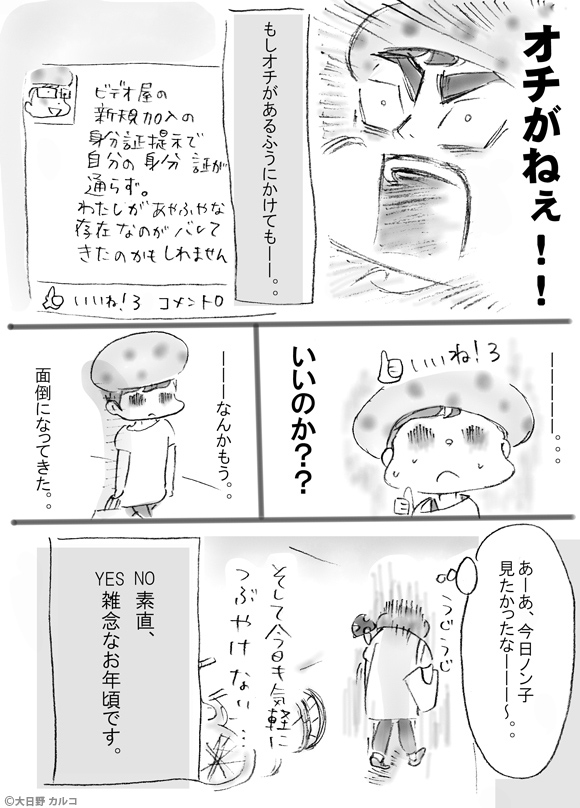 オチがねぇ!!
もしオチがあるふうにかけてもーー。。
ビデオ屋の
新規加入の
身分証提示で
自分の身分証が
通らず。
わたしがあやふやな
存在なのがバレて
きたのかもしれません
いいね!3 コメント0
ーーーー。。。
いいね!3
いいのか??
ーーーなんかもう。。
面倒になってきた。。
あーあ、今日ノン子
見たかったなーーー〜。。
うじうじ
そして今日も気軽に
つぶやけない…
YES NO 素直、
雑念なお年頃です。
©大日野 カルコ